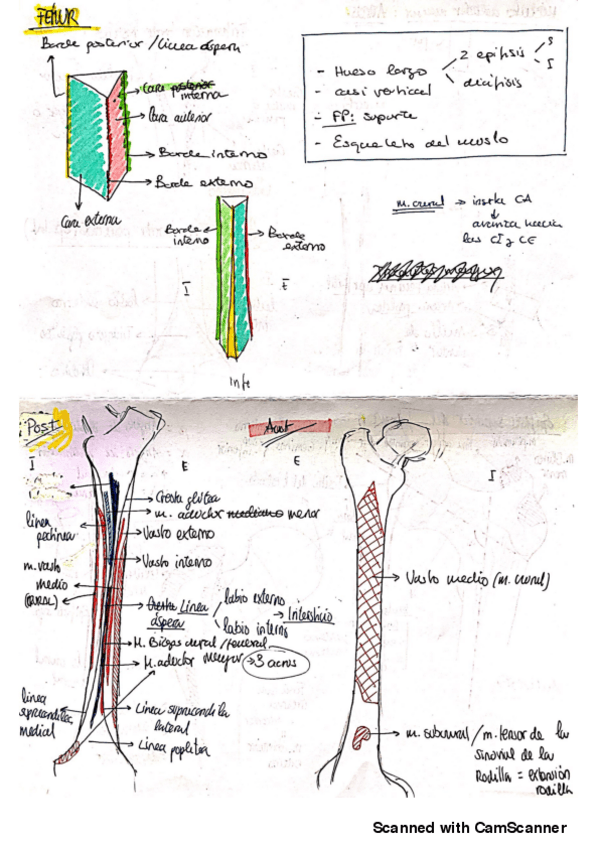 FEMUR
Borde posterior / línea áspera
Cara posterior interna
Cara anterior
Borde interno
Borde externo
Cara externa
- Hueso largo
2 epífisis
S
I
diáfisis
- casi vertical
- FP: soporte
- Esqueleto del muslo
m. crural → inserta CA
avanza hacia
las CI y CE
Borde interno
Borde externo
I
E
Inf
Post
I
E
Cresta glútea
m. aductor mediano menor
Vasto externo
Vasto interno
línea pectínea
m. vasto
medio
(CRURAL)
Cresta Línea
áspera
labio externo
labio interno
→ Intersticio
M. Bíceps crural / femoral
M. aductor mayor → 3 arcos
línea
supracondílea
medial
Línea supracondílea
lateral
Línea poplítea
Ant
E
I
Vasto medio (m. crural)
m. subcrural / m. tensor de la
sinovial de la
rodilla = extensión
rodilla
Scanned with CamScanner